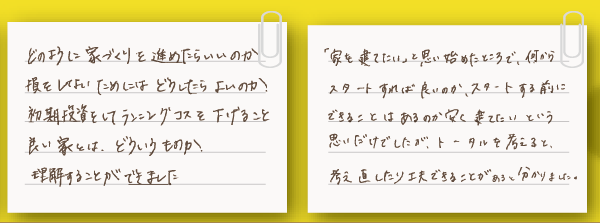 どのように家づくりを進めたらいいのか
損をしないためにはどうしたらよいのか、
初期投資をしてランニングコスを下げること
良い家とは、どういうものか、
理解することができました
「家を建てたい」と思い始めたところで、何から
スタートすれば良いのか、スタートする前に
できることはあるのか安く建てたいという
思いだけでしたが、トータルを考えると、
考え直したり工夫できることがあると分かりました。